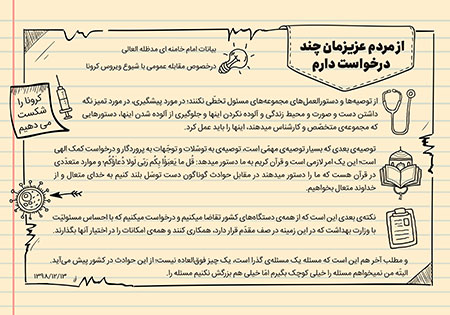 از مردم عزیزمان چند
درخواست دارم
بیانات امام خامنه ای مدظله العالی
درخصوص مقابله عمومی با شیوع ویروس کرونا
کرونا را
شکست
می دهیم
از توصیه‌ها و دستورالعمل‌های مجموعه‌های مسئول تخطّی نکنند؛ در مورد پیشگیری، در مورد تمیز نگه
داشتن دست و صورت و محیط زندگی و آلوده نکردن اینها و جلوگیری از آلوده شدن اینها، دستورهایی
که مجموعه‌ی متخصّص و کارشناس میدهند، اینها را باید عمل کرد.
توصیه‌ی بعدی که بسیار توصیه‌ی مهمّی است، توصیه‌ی به توسّلات و توجّهات به پروردگار و درخواست کمک الهی
است؛ این یک امر لازمی است و قرآن کریم به ما دستور میدهد: قُل ما یَعبَؤُا بِکُم رَبّی لَولا دُعاؤُکُم؛ و موارد متعدّدی
در قرآن هست که ما را دستور میدهند در مقابل حوادث گوناگون دست توسّل بلند کنیم به خدای متعال و از
خداوند متعال بخواهیم.
نکته‌ی بعدی این است که از همه‌ی دستگاه‌های کشور تقاضا میکنیم و درخواست میکنیم که با احساس مسئولیّت
با وزارت بهداشت که در این زمینه در صف مقدّم قرار دارد، همکاری کنند و همه‌ی امکانات را در اختیار آنها بگذارند.
و مطلب آخر هم این است که مسئله یک مسئله‌ی گذرا است، یک چیز فوق‌العاده نیست؛ از این حوادث در کشور پیش می‌آید.
البتّه من نمیخواهم مسئله را خیلی کوچک بگیرم امّا خیلی هم بزرگش نکنیم مسئله را.
۱۳۹۸/۱۲/۱۳